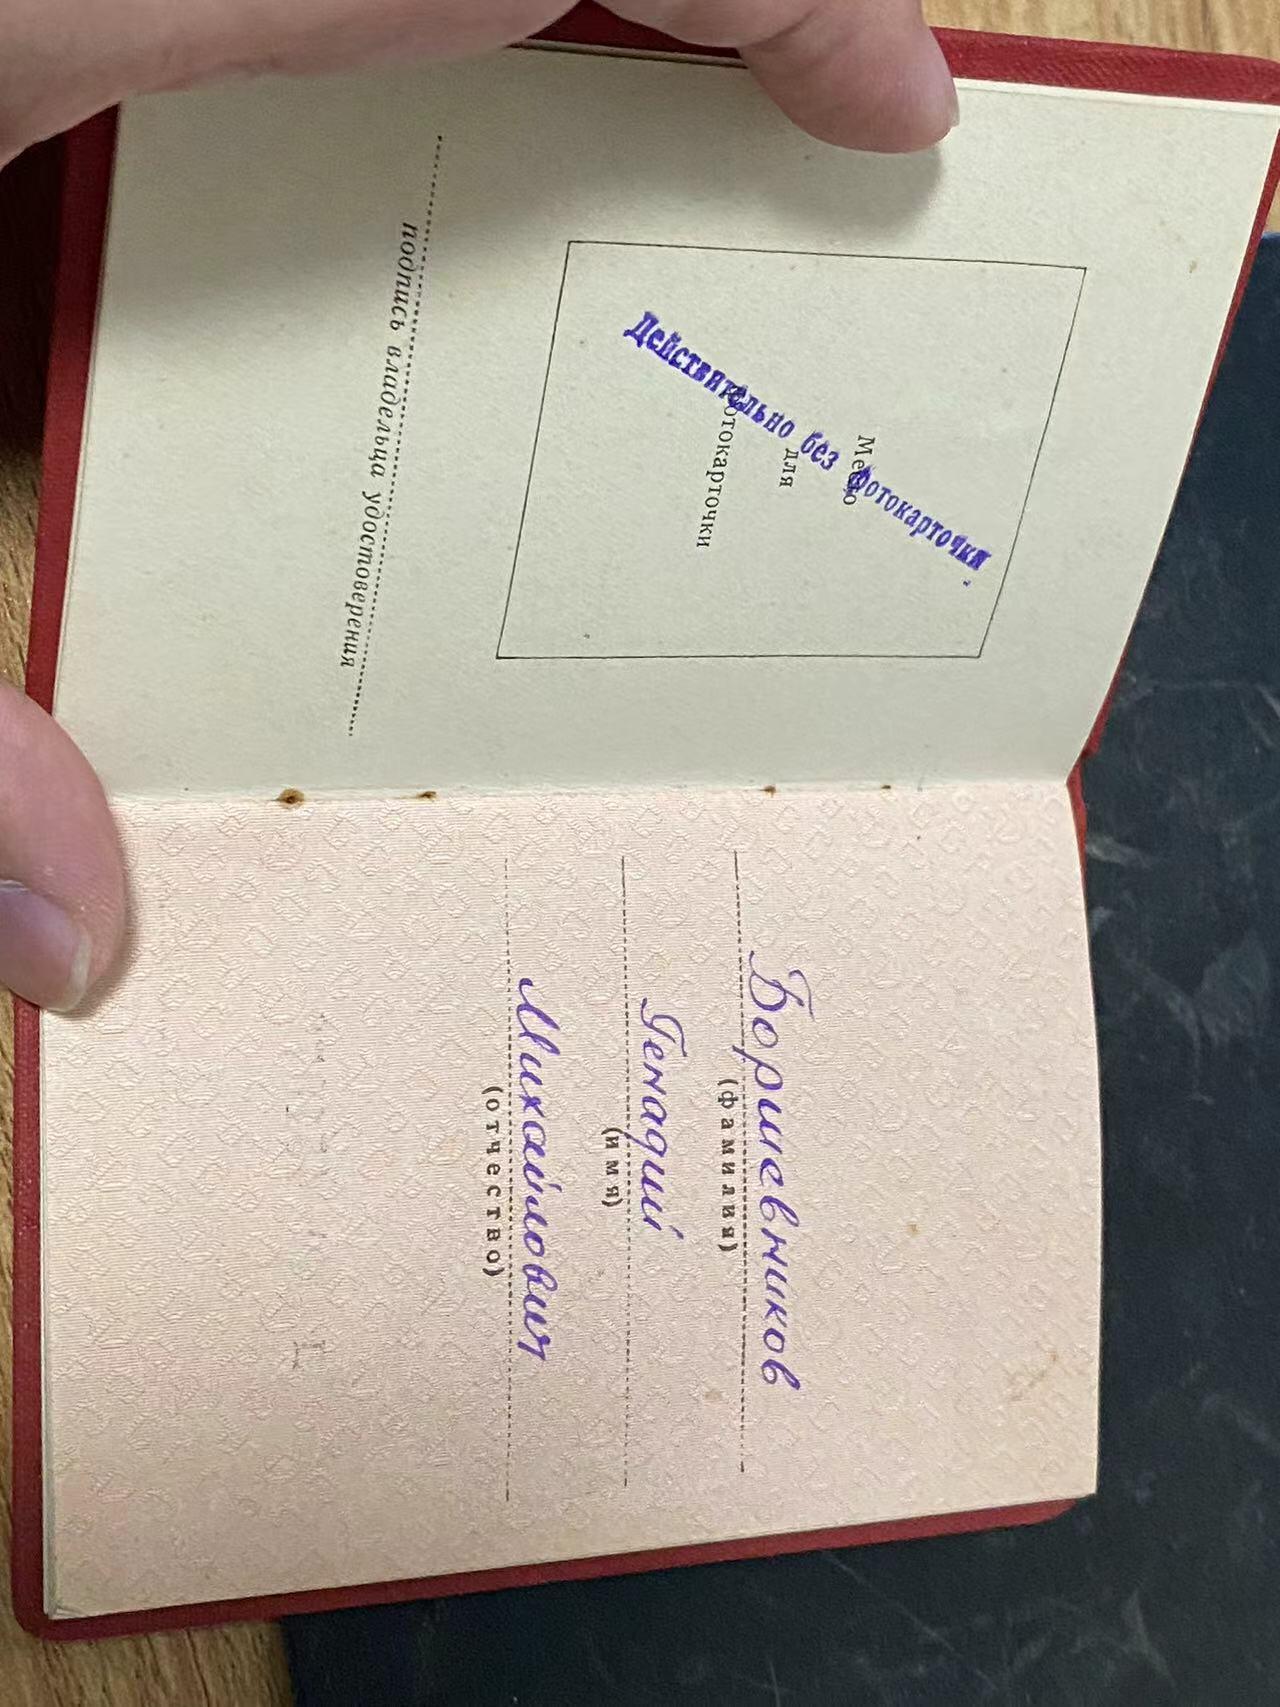 Место
для
фотокарточки
Действительно без фотокарточки
подпись владельца удостоверения
Борщевников
(фамилия)
Генадий
(имя)
Михайлович
(отчество)